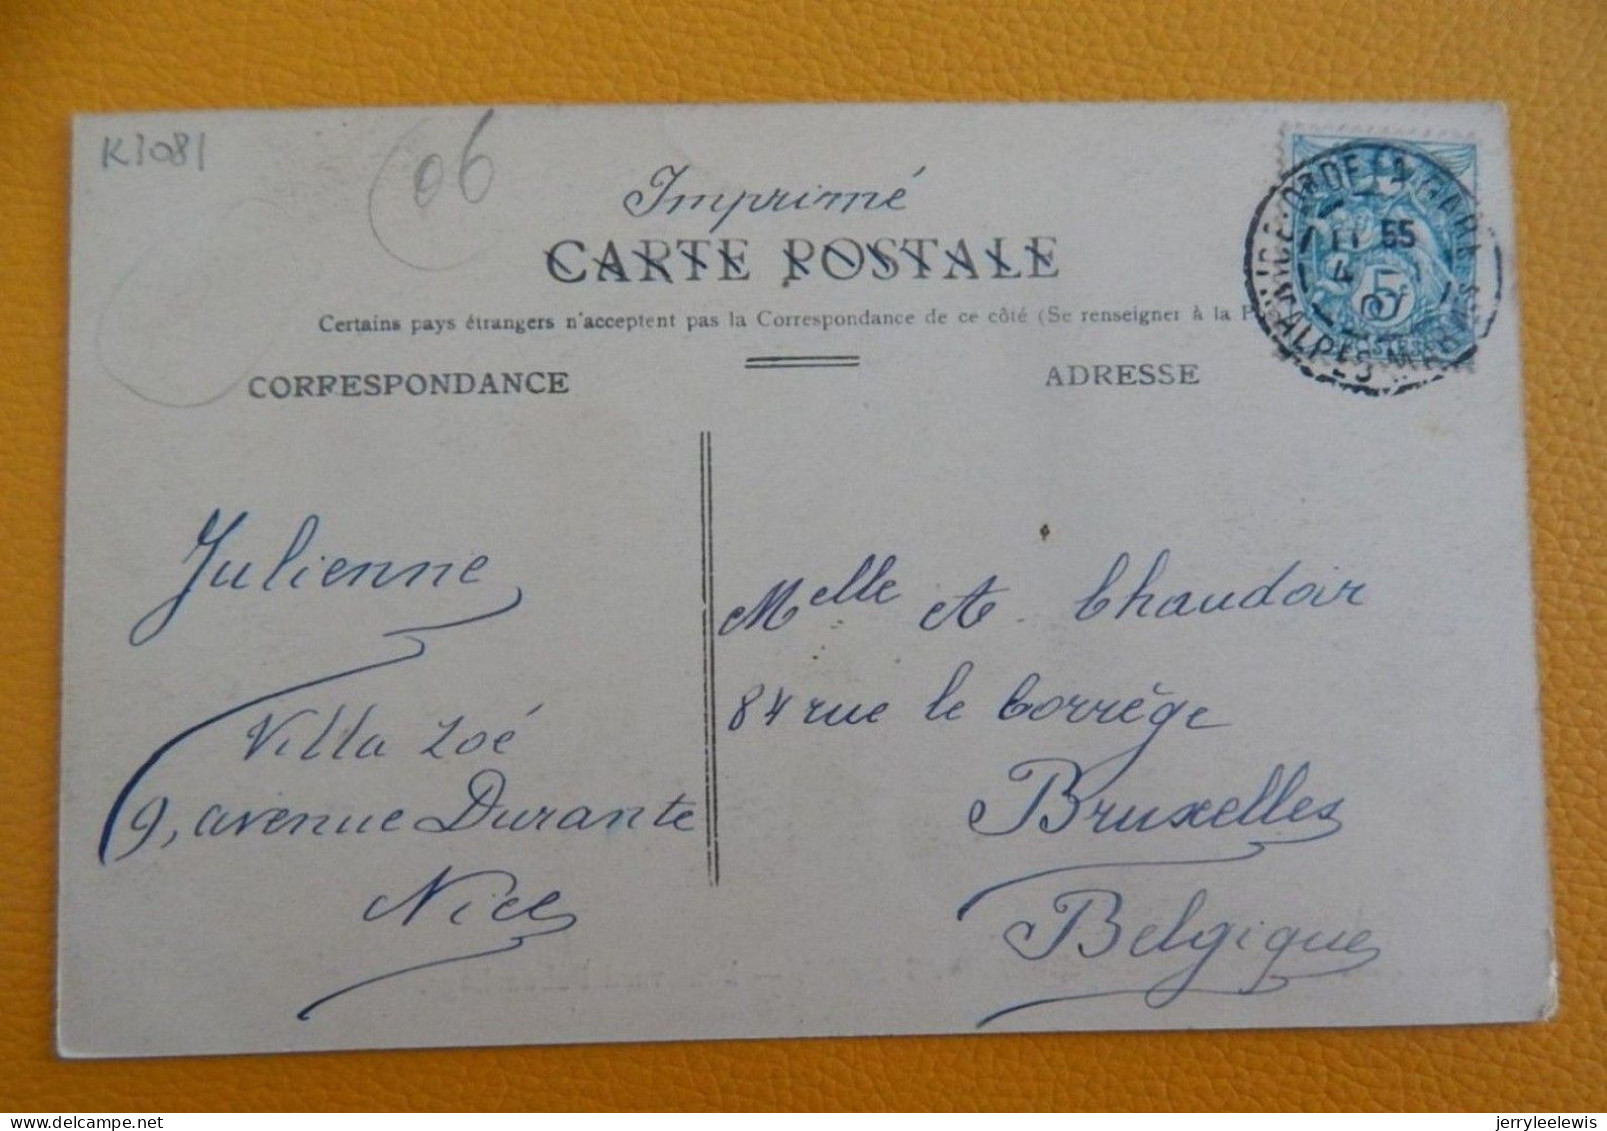 K3081
06
Imprimé
CARTE POSTALE
Certains pays étrangers n'acceptent pas la Correspondance de ce côté (Se renseigner à la
CORRESPONDANCE
ADRESSE
5
Julienne
Villa Zoé
9, avenue Durante
Nice
Melle A. Chaudoir
84 rue le Corrège
Bruxelles
Belgique
jerryleelewis